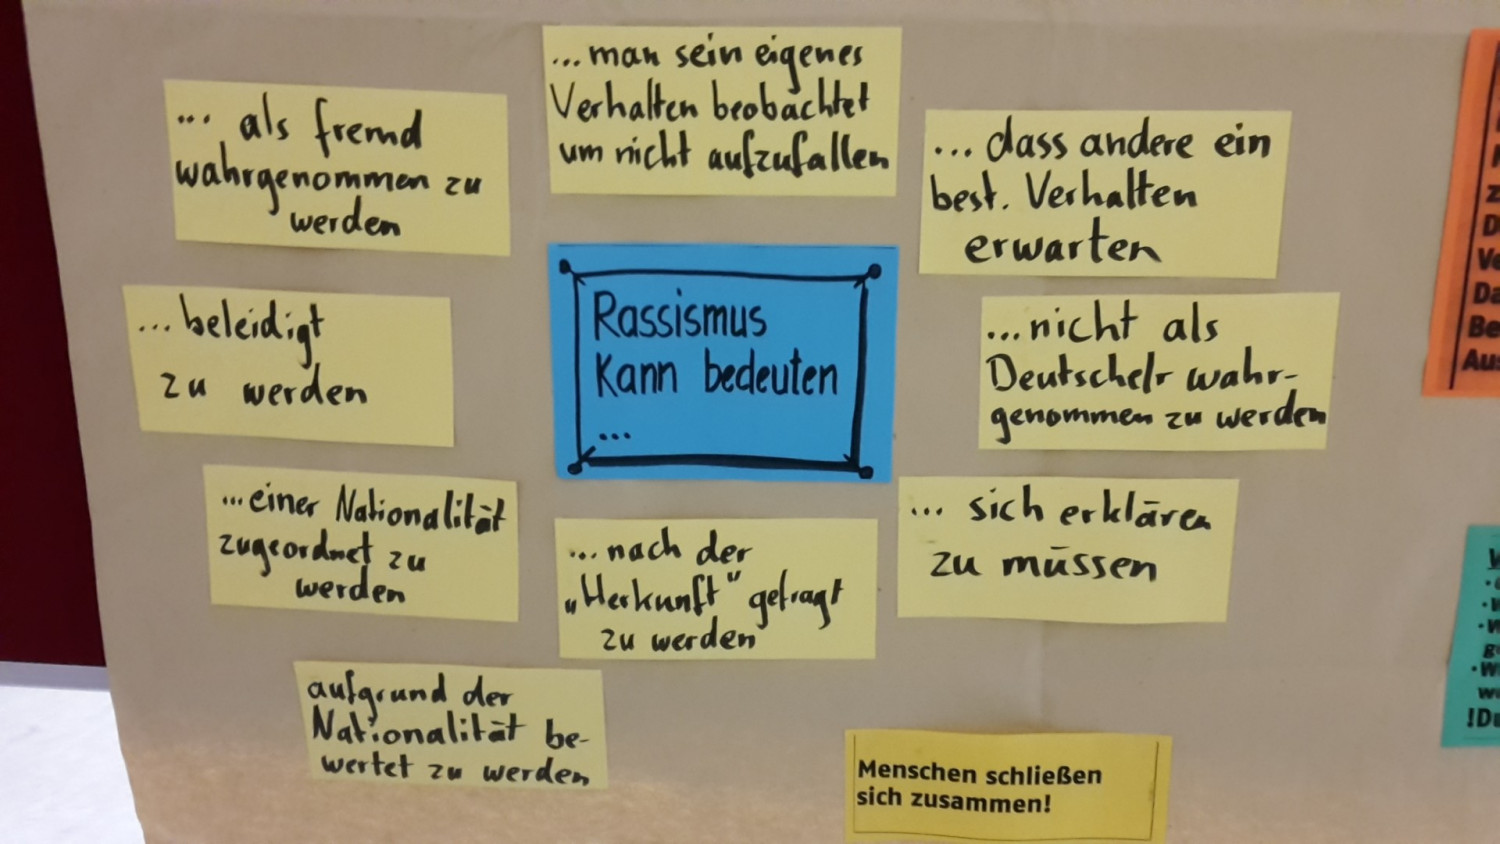 ... als fremd
wahrgenommen zu
werden
... man sein eigenes
Verhalten beobachtet
um nicht aufzufallen
... dass andere ein
best. Verhalten
erwarten
... beleidigt
zu werden
Rassismus
Kann bedeuten
...
... nicht als
Deutsche/r wahr-
genommen zu werden
... einer Nationalität
zugeordnet zu
werden
... nach der
„Herkunft" gefragt
zu werden
... sich erklären
zu müssen
aufgrund der
Nationalität be-
wertet zu werden
Menschen schließen
sich zusammen!